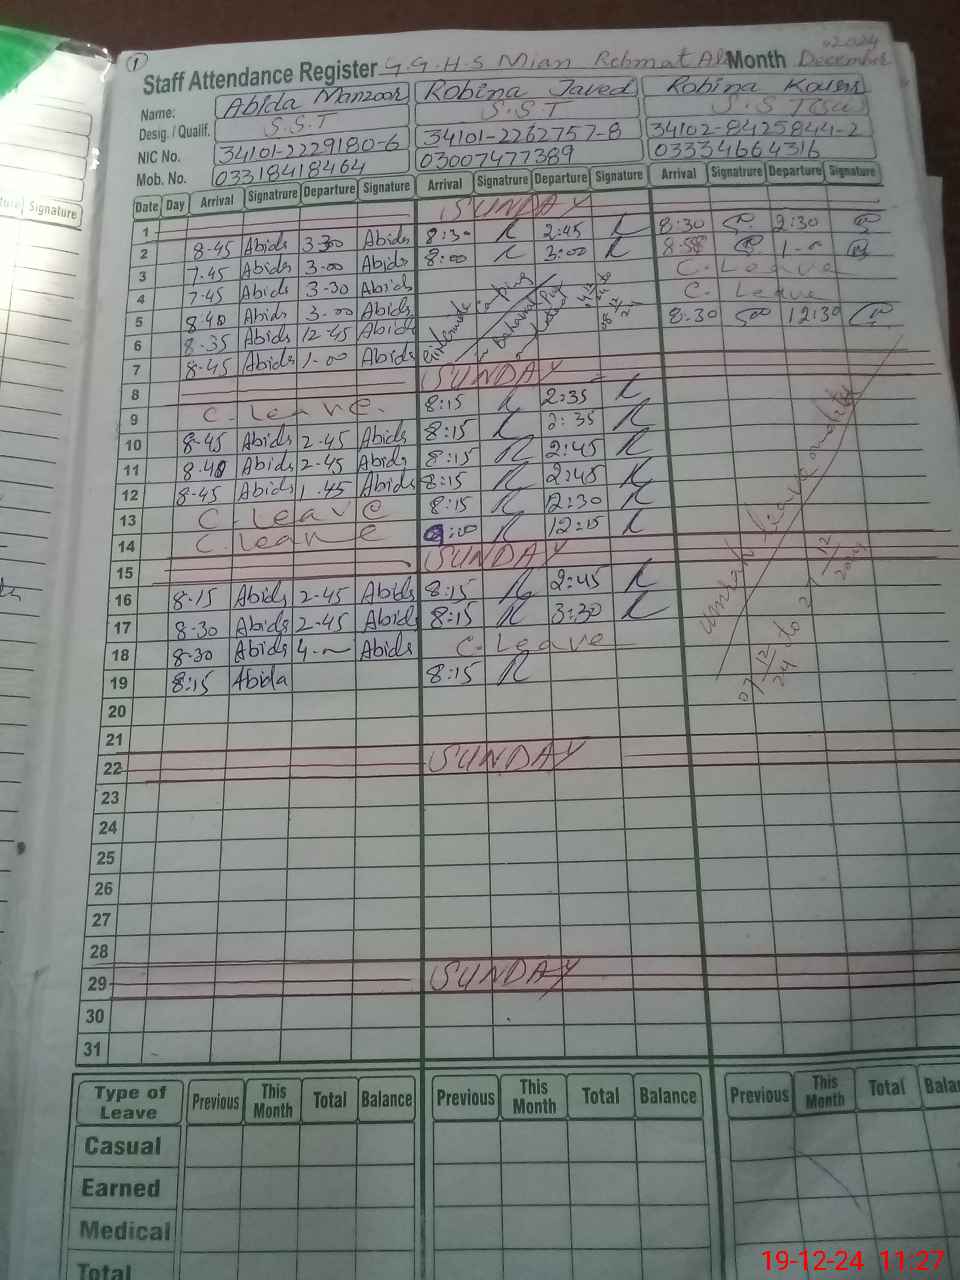 ① 2024
Staff Attendance Register G.G.H.S Mian Rehmat Ali Month December
Name: Abida Manzoor Robina Javed Robina Kousar
Desig. / Qualif. S.S.T S.S.T S.S.T
NIC No. 34101-2229180-6 34101-2262757-8 34102-8425844-2
Mob. No. 03318418464 03007477389 03334664316
Date Day Arrival Signatrure Departure Signature Arrival Signatrure Departure Signature Arrival Signatrure Departure Signature
1 SUNDAY
2 8-45 Abida 3-30 Abida 8:30 2:45 8:30 2:30
3 7-45 Abida 3-00 Abida 8:00 3:00 1-0
4 7-45 Abida 3-30 Abida C. Leave
5 8-40 Abida 3-00 Abida C. Leave
6 8-35 Abida 12-45 Abida 8-30 12:30
7 8-45 Abida 1-00 Abida
8 SUNDAY
9 C. Leave. 8:15 2:35
10 8-45 Abida 2-45 Abida 8:15 2:35
11 8-40 Abida 2-45 Abida 8:15 2:45
12 8-45 Abida 1.45 Abida 8:15 2:45
13 C. Leave 8:15 12:30
14 C. Leave 12:15
15 SUNDAY
16 8-15 Abida 2-45 Abida 8:15 2:45
17 8-30 Abida 2-45 Abida 8:15 3:30
18 8-30 Abida 4- Abida C. Leave
19 8:15 Abida 8:15
20
21
22 SUNDAY
23
24
25
26
27
28
29 SUNDAY
30
31
07 12 24 to 12 2024
Type of Leave Previous This Month Total Balance Previous This Month Total Balance Previous This Month Total Bala
Casual
Earned
Medical
Total
Signature
19-12-24 11:27